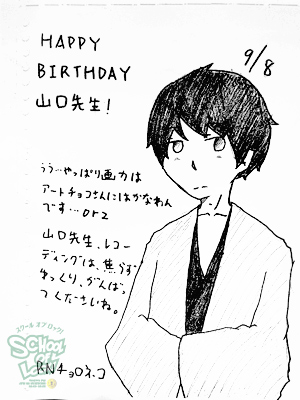 HAPPY
BIRTHDAY
山口先生!
9/8
うう…やっぱり画力は
アートチョコさんにはかなわん
です…orz
山口先生、レコー
ディングは、焦らず
ゆっくり、がんばっ
てくださいね。
RNチョロネコ
スクール オブ ロック!
SCHOOL
OF
LOCK!